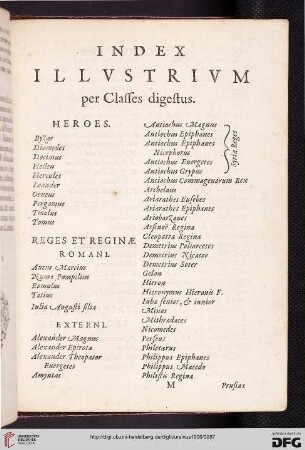 INDEX
ILLVSTRIVM
per Classes digestus.
HEROES.
Byzas
Diomedes
Docimus
Hellen
Hercules
Leander
Oeneus
Pergamus
Tmolus
Tomus
REGES ET REGINÆ
ROMANI.
Ancus Marcius
Numa Pompilius
Romulus
Tatius
Iulia Augusti filia
EXTERNI.
Alexander Magnus
Alexander Epirota
Alexander Theopator
Euergetes
Amyntas
Antiochus Magnus
Antiochus Epiphanes
Antiochus Epiphanes
Nicephorus
Antiochus Euergetes
Antiochus Grypus
Syriæ Reges
Antiochus Commagenorum Rex
Archelaus
Ariarathes Eusebes
Ariarathes Epiphanes
Ariobarzanes
Arsinoë Regina
Cleopatra Regina
Demetrius Poliorcetes
Demetrius Nicator
Demetrius Soter
Gelon
Hieron
Hieronymus Hieronis F.
Iuba senior, & iunior
Minos
Mithradates
Nicomedes
Perseus
Philetærus
Philippus Epiphanes
Philippus Macedo
Philistis Regina
M
Prusias
http://digi.ub.uni-heidelberg.de/diglit/ursinus1606/0287
UNIVERSITÄTS-
BIBLIOTHEK
HEIDELBERG
DFG